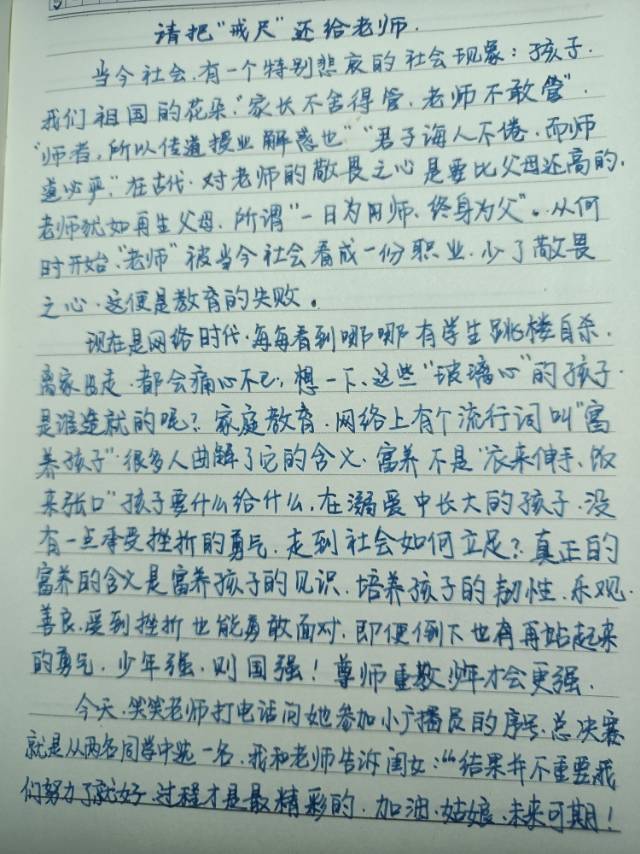 请把“戒尺”还给老师.
当今社会.有一个特别悲哀的社会现象：孩子.
我们祖国的花朵.“家长不舍得管.老师不敢管”.
“师者,所以传道授业解惑也”“君子诲人不倦.而师
道必严.”在古代.对老师的敬畏之心是要比父母还高的.
老师犹如再生父母.所谓“一日为师.终身为父”。从何
时开始.“老师”被当今社会看成一份职业.少了敬畏
之心.这便是教育的失败。
现在是网络时代.每每看到哪哪有学生跳楼自杀.
离家出走.都会痛心不已,想一下.这些“玻璃心”的孩子
是谁造就的呢？家庭教育.网络上有个流行词叫“富
养孩子”.很多人曲解了它的含义.富养不是“衣来伸手、饭
来张口”孩子要什么给什么.在溺爱中长大的孩子.没
有一点承受挫折的勇气.走到社会如何立足？真正的
富养的含义是富养孩子的见识.培养孩子的韧性.乐观.
善良.受到挫折也能勇敢面对.即便倒下也有再站起来
的勇气.少年强.则国强！尊师重教少年才会更强.
今天.笑笑老师打电话问她参加小广播员的序号.总决赛
就是从两名同学中选一名.我和老师告诉闺女:“结果并不重要.我
们努力了就好.过程才是最精彩的.加油.姑娘.未来可期！